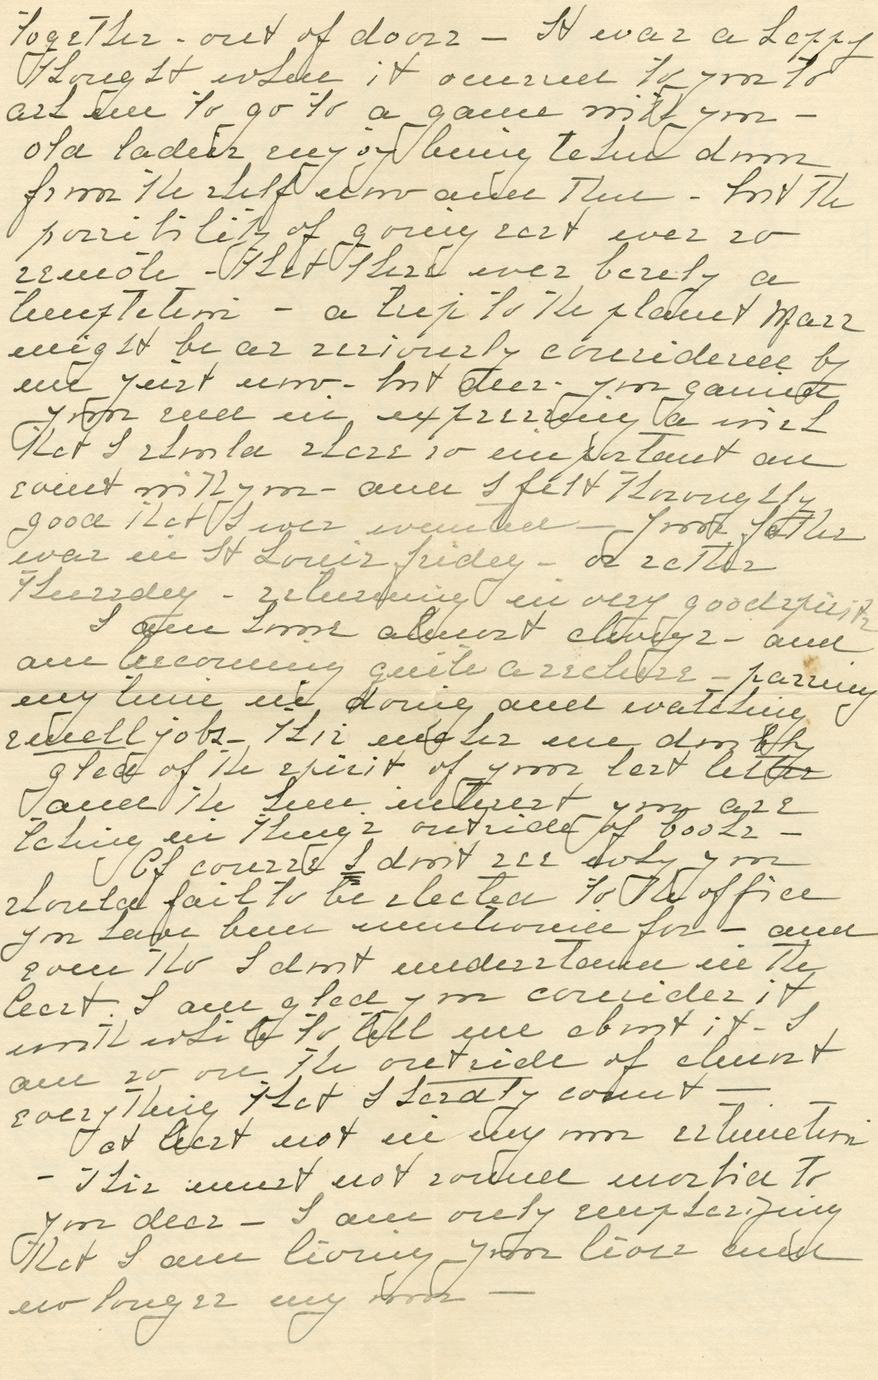 together - out of doors - It was a happy
thought when it occurred to you to
ask me to go to a game with you -
old ladies enjoy being taken down
from the shelf now and then - but the
possibility of going east was so
remote - that there was barely a
temptation - a trip to the planet Mars
might be as seriously considered by
me just now - but dear - you gained
your end in expressing a wish
that I should share so important an
event with you - and I felt thoroughly
good that I was wanted - Your father
was in St Louis friday - or rather
Thursday - returning in very good spirits
I am home almost always - and
am becoming quite a recluse - passing
my time in doing and watching
small jobs - This makes me doubly
glad of the spirit of your last letter
and the keen interest you are
taking in things outside of books -
Of course I dont see why you
should fail to be elected to the office
you have been mentioned for - and
even tho I dont understand in the
least. I am glad you consider it
worth while to tell me about it - I
am so on the outside of almost
everything that I hardly count -
at least not in my own estimation
- This must not sound morbid to
you dear - I am only emphasizing
that I am living your lives and
no longer my own -